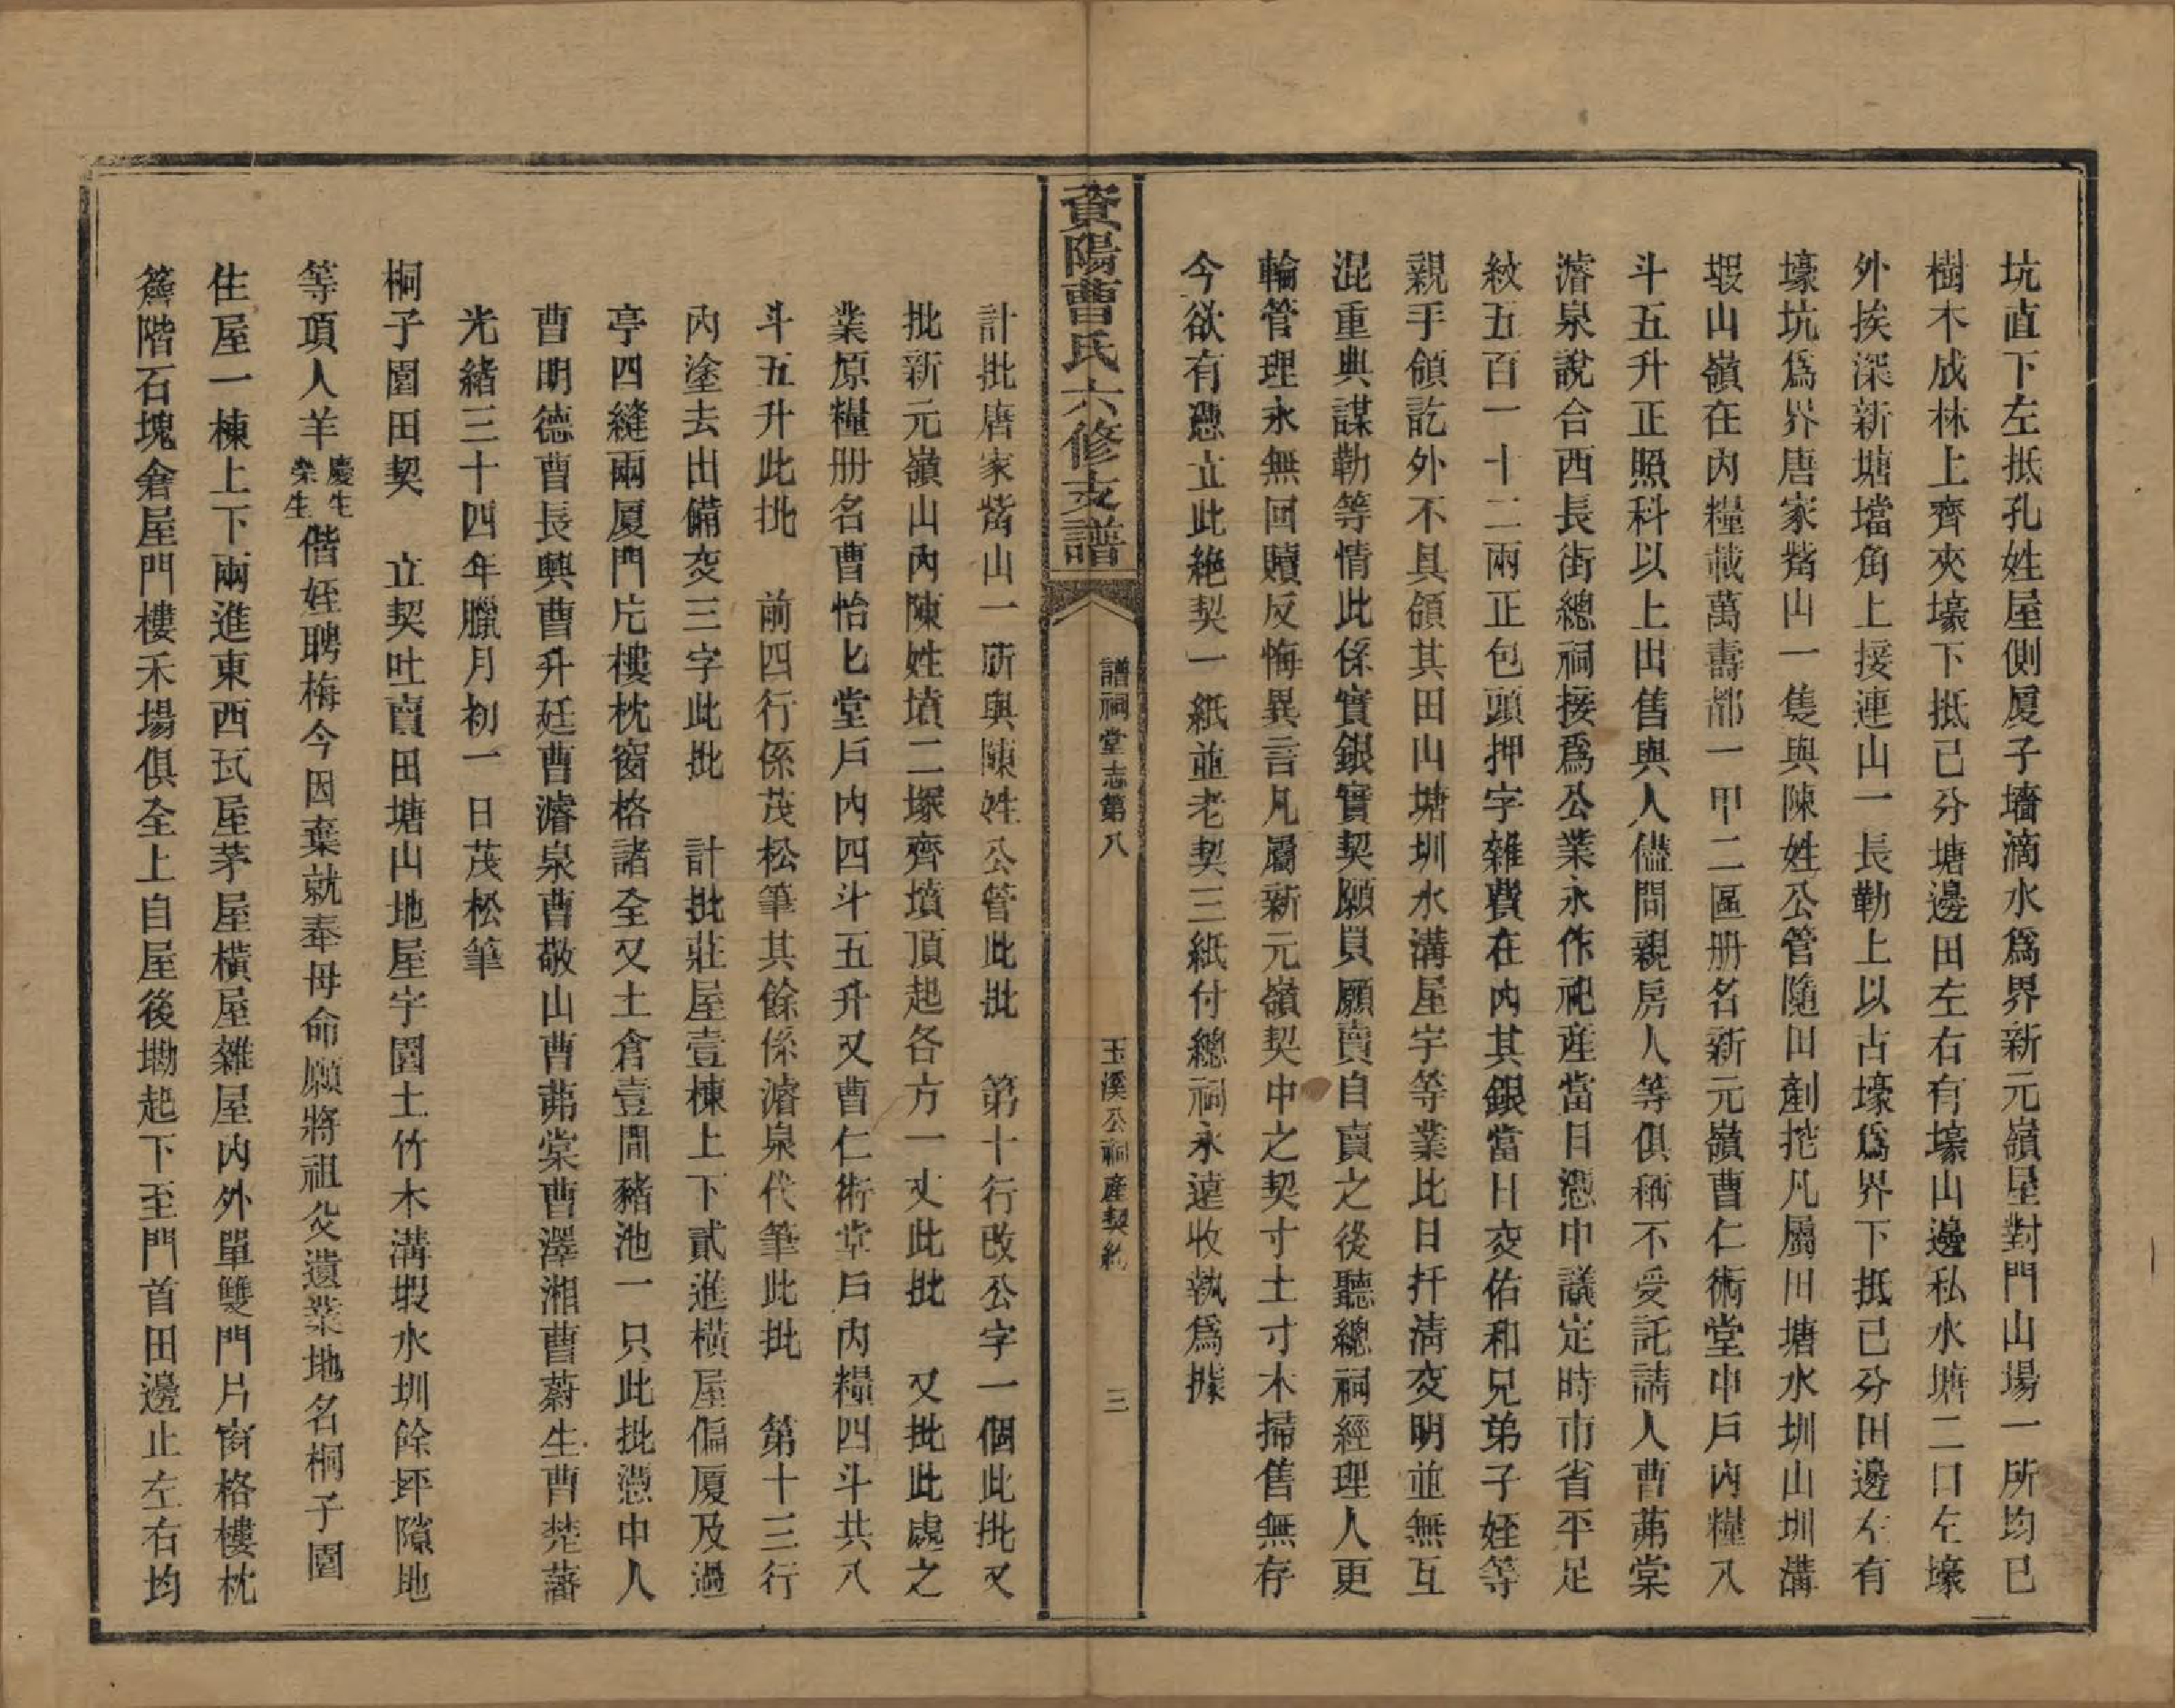 坑直下左抵孔姓屋側厦子墻滴水爲界新元嶺屋對門山場一所均已
樹木成林上齊夾壕下抵已分塘邊田左右有壕山邊私水塘二口左壕
外挨深新塘壋角上接連山一長勒上以古壕爲界下抵已分田邊左有
壕坑爲界唐家觜山一隻與陳姓公管隨田剷挖凡屬田塘水圳山圳溝
塅山嶺在内糧載萬壽都一甲二區册名新元嶺曹仁術堂申戶内糧入
斗五升正照科以上出售與人儘問親房人等俱稱不受託請人曹茀棠
濬泉說合西長街總祠接爲公業永作祀產當日憑中議定時市省平足
紋五百一十二兩正包頭押字雜費在内其銀當日交佑和兄弟子姪等
親手領訖外不具領其田山塘圳水溝屋宇等業比日扦清交明並無互
混重典謀勒等情此係實銀實契願買願賣自賣之後聽總祠經理人更
輪管理永無回贖反悔異言凡屬新元嶺契中之契寸土寸木掃售無存
今欲有憑立此絶契一紙並老契三紙付總祠永遠收執爲據
資陽曹氏六修支譜
譜祠堂志第八
玉溪公祠產契約
三
計批唐家觜山一所與陳姓公管此批　第十行改公字一個此批又
批新元嶺山内陳姓墳二塚齊墳頂起各方一丈此批　又批此處之
業原糧册名曹怡七堂戶内四斗五升又曹仁術堂戶内糧四斗共八
斗五升此批　前四行係茂松筆其餘係濬泉代筆此批　第十三行
内塗去出備交三字此批　計批莊屋壹棟上下貳進橫屋偏厦及過
亭四縫兩厦門片樓枕窗格諸全又土倉壹間豬池一只此批憑中人
曹明德曹長興曹升廷曹濬泉曹敬山曹茀棠曹澤湘曹蔚生曹楚藩
光緒三十四年臘月初一日茂松筆
桐子園田契　立契吐賣田塘山地屋宇園土竹木溝塅水圳餘坪隙地
等項人羊慶生榮生偕姪聘梅今因棄就奉母命願將祖父遺業地名桐子園
住屋一棟上下兩進東西瓦屋茅屋橫屋雜屋内外單雙門片窗格樓枕
簷階石塊倉屋門樓禾場俱全上自屋後墈起下至門首田邊止左右均